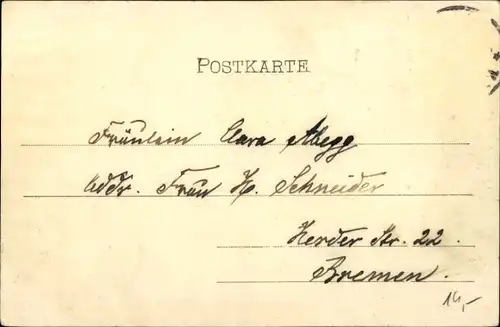 POSTKARTE
Fräulein Clara Abegg
Addr. Frau H. Schneider
Herder Str. 22.
Bremen.
14,-